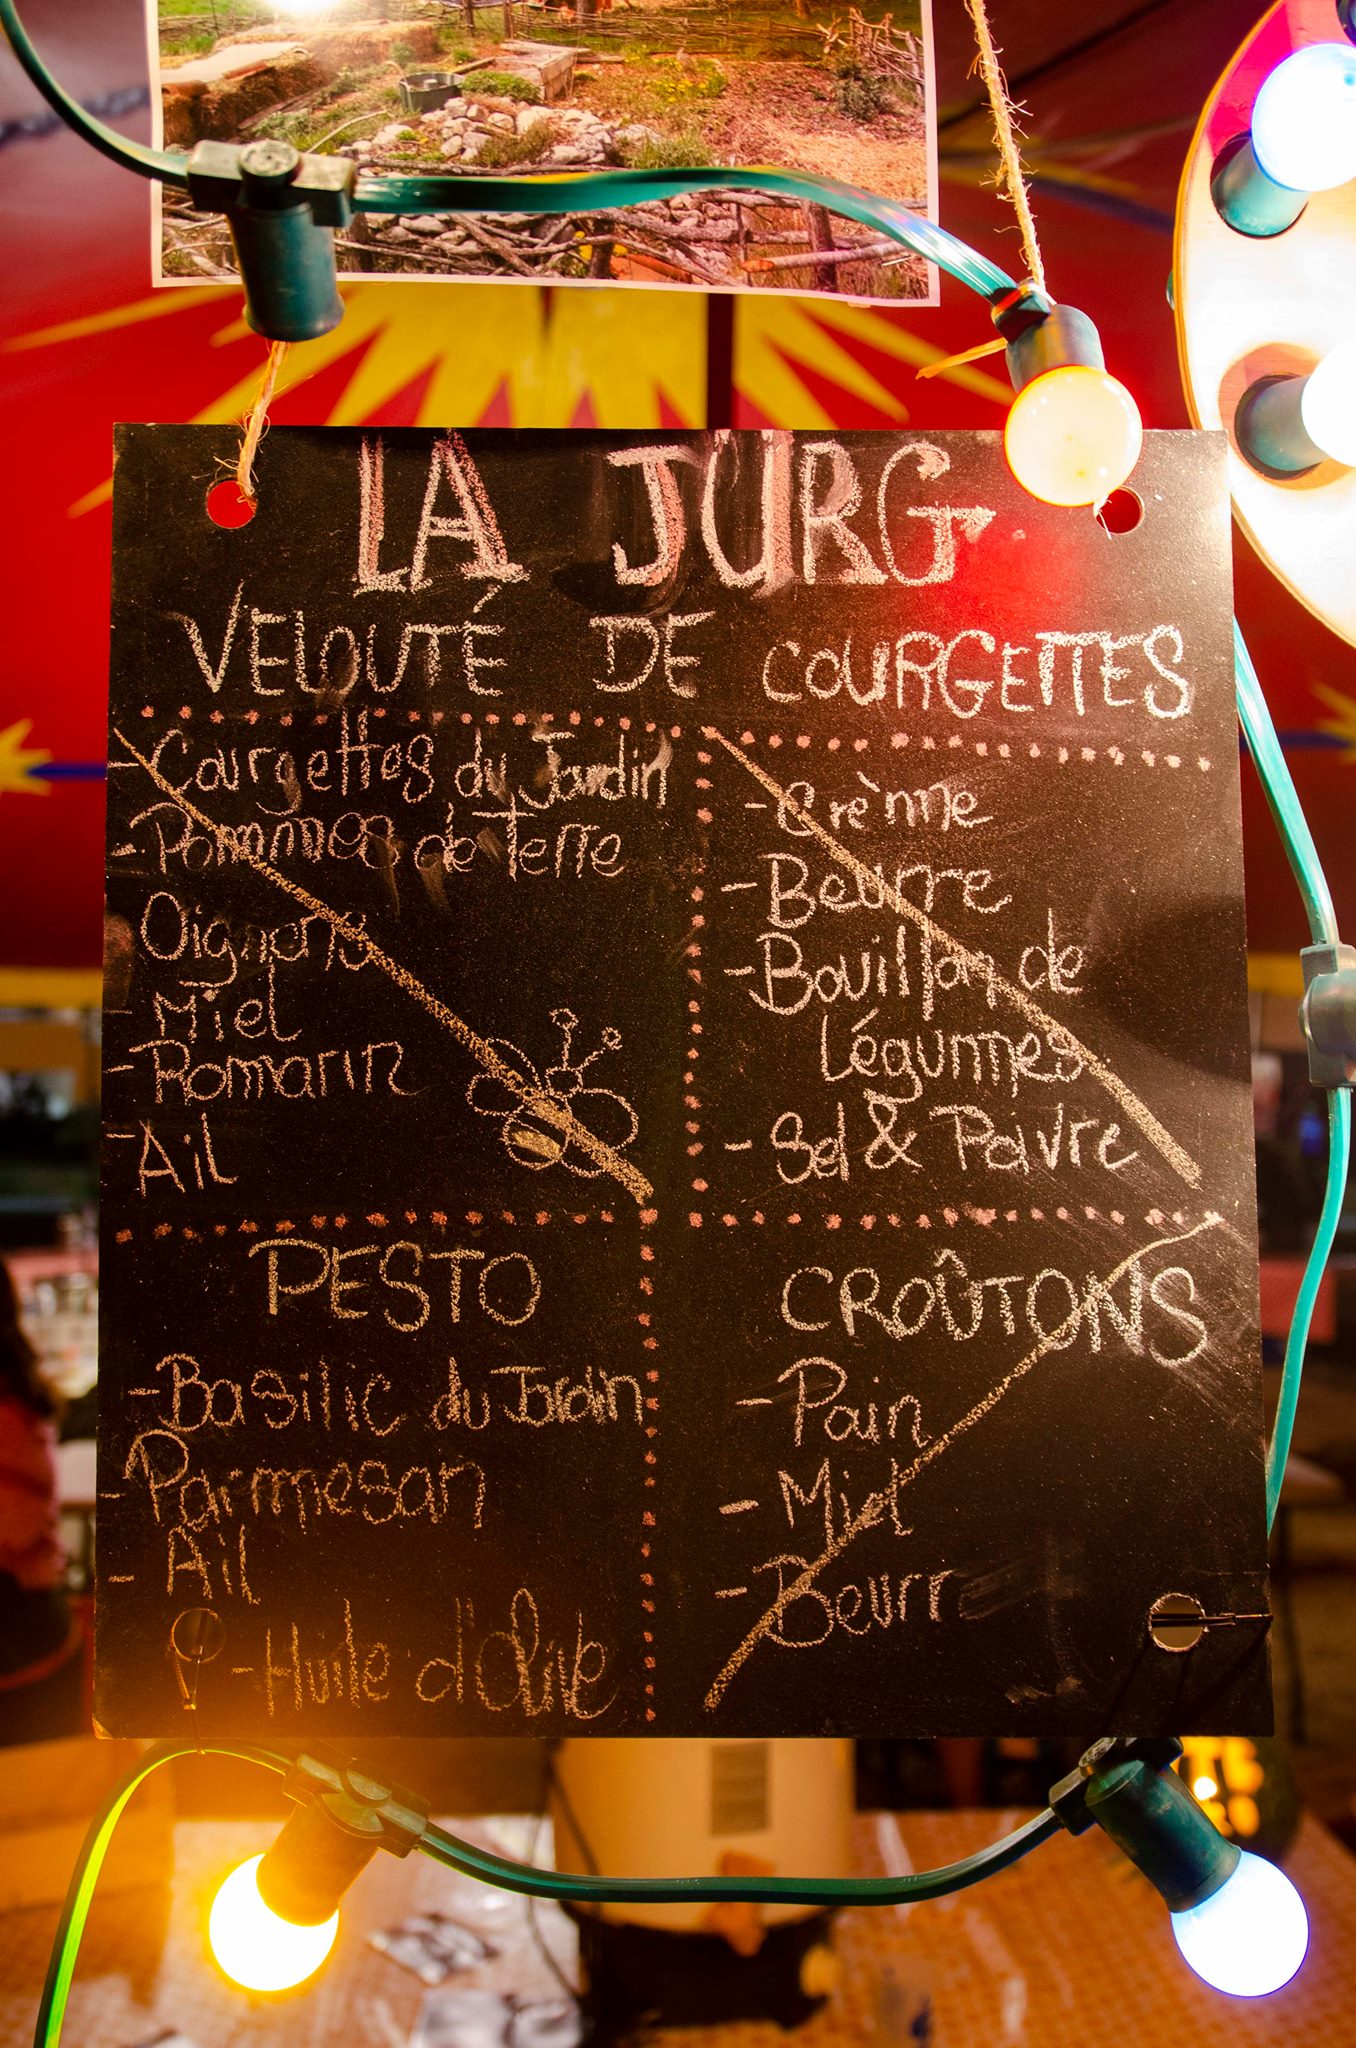 LA JURG
VELOUTÉ DE COURGETTES
- Courgettes du Jardin
- Pommes de Terre
Oignons
- Miel
- Romarin
- Ail
- Crème
- Beurre
- Bouillon de
Légumes
- Sel & Poivre
PESTO
- Basilic du Jardin
- Parmesan
- Ail
- Huile d'Olive
CROÛTONS
- Pain
- Miel
- Beurr